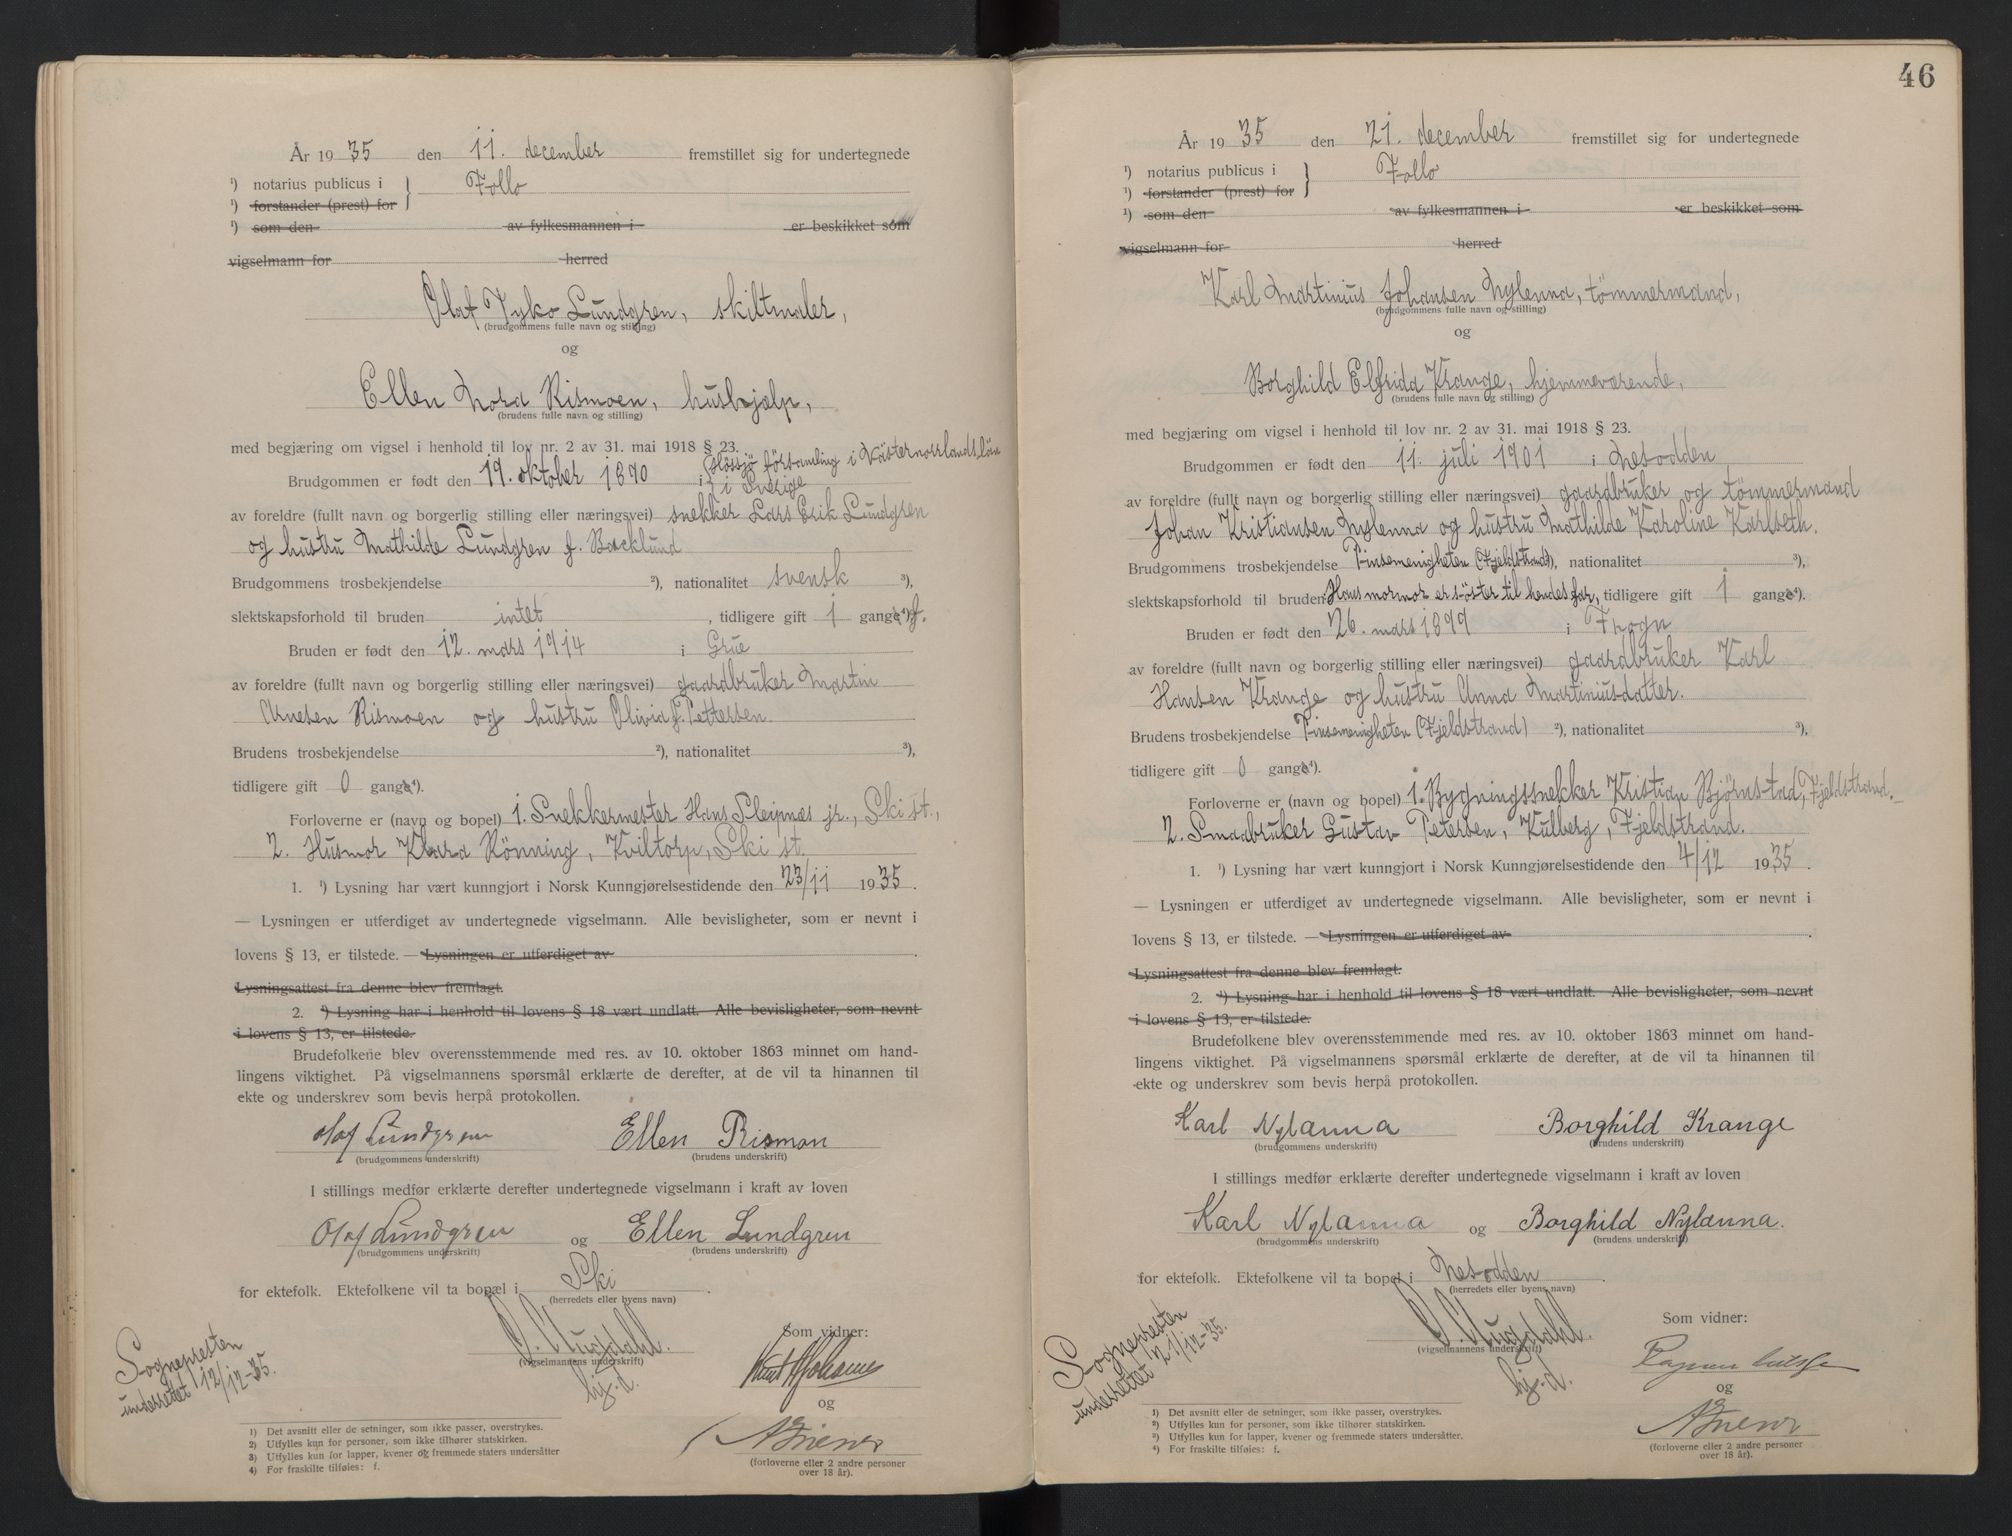 År 1935 den 11. december fremstillet sig for undertegnede
¹) notarius publicus i } Follo
¹) forstander (prest) for
¹) som den av fylkesmannen i er beskikket som
vigselmann for herred
Olaf Tyko Lundgren, skiltmaler,
(brudgommens fulle navn og stilling)
og
Ellen Nora Rismoen, hushjælp,
(brudens fulle navn og stilling)
med begjæring om vigsel i henhold til lov nr. 2 av 31. mai 1918 § 23.
Brudgommen er født den 19. oktober 1890 i Hässjö församling i Västernorrlands län
i Sverige
av foreldre (fullt navn og borgerlig stilling eller næringsvei) snekker Lars Erik Lundgren
og hustru Mathilde Lundgren f. Backlund
Brudgommens trosbekjendelse ²), nationalitet svensk ³),
slektskapsforhold til bruden intet, tidligere gift 1 gange⁴) f.
Bruden er født den 12. mars 1914 i Grue
av foreldre (fullt navn og borgerlig stilling eller næringsvei) gaardbruker Martin
Arnesen Rismoen og hustru Olivia f. Pettersen.
Brudens trosbekjendelse ²), nationalitet ³),
tidligere gift 0 gange⁴).
Forloverne er (navn og bopel) 1. Snekkermester Hans Sleipnæs jr., Ski st.,
2. Husmor Klara Rönning, Kviltorp, Ski st.
1. ¹) Lysning har vært kunngjort i Norsk Kunngjørelsestidende den 23/11 1935.
— Lysningen er utferdiget av undertegnede vigselmann. Alle bevisligheter, som er nevnt i
lovens § 13, er tilstede. — Lysningen er utferdiget av .
Lysningsattest fra denne blev fremlagt.
2. ¹) Lysning har i henhold til lovens § 18 vært undlatt. Alle bevisligheter, som nevnt
i lovens § 13, er tilstede.
Brudefolkene blev overensstemmende med res. av 10. oktober 1863 minnet om hand-
lingens viktighet. På vigselmannens spørsmål erklærte de derefter, at de vil ta hinannen til
ekte og underskrev som bevis herpå protokollen.
Olaf Lundgren Ellen Rismon
(brudgommens underskrift) (brudens underskrift)
I stillings medfør erklærte derefter undertegnede vigselmann i kraft av loven
Olaf Lundgren og Ellen Lundgren
(brudgommens underskrift) (brudens underskrift)
for ektefolk. Ektefolkene vil ta bopæl i Ski.
(herredets eller byens navn)
Sognepresten
underrettet 12/12-35.
O. Mugdahl.
(vigselmannens underskrift)
hj. d.
Som vidner:
og
(forloverne eller 2 andre personer
over 18 år).
1) Det avsnitt eller de setninger, som ikke passer, overstrykes.
2) Utfylles kun for personer, som ikke tilhører statskirken.
3) Utfylles kun for lapper, kvener og fremmede staters undersåtter
4) For fraskilte tilføies: f.
46
År 1935 den 21. december fremstillet sig for undertegnede
¹) notarius publicus i } Follo
¹) forstander (prest) for
¹) som den av fylkesmannen i er beskikket som
vigselmann for herred
Karl Martinius Johansen Nylenna, tömmermand,
(brudgommens fulle navn og stilling)
og
Borghild Elfrida Krange, hjemmeværende,
(brudens fulle navn og stilling)
med begjæring om vigsel i henhold til lov nr. 2 av 31. mai 1918 § 23.
Brudgommen er født den 11. juli 1901 i Nesodden
av foreldre (fullt navn og borgerlig stilling eller næringsvei) gaardbruker og tömmermand
Johan Kristiansen Nylenna og hustru Mathilde Karoline Karlseth.
Brudgommens trosbekjendelse Pinsemenigheten (Fjeldstrand) ²), nationalitet ³),
slektskapsforhold til bruden Hans mormor er söster til hendes far, tidligere gift 1 gange⁴).
Bruden er født den 26. mars 1899 i Frogn
av foreldre (fullt navn og borgerlig stilling eller næringsvei) gaardbruker Karl
Hansen Krange og hustru Anna Martiniusdatter.
Brudens trosbekjendelse Pinsemenigheten (Fjeldstrand) ²), nationalitet ³),
tidligere gift 0 gange⁴).
Forloverne er (navn og bopel) 1. Bygningssnekker Kristian Björnstad, Fjeldstrand.
2. Smaabruker Gustav Petersen, Kulberg, Fjeldstrand.
1. ¹) Lysning har vært kunngjort i Norsk Kunngjørelsestidende den 4/12 1935.
— Lysningen er utferdiget av undertegnede vigselmann. Alle bevisligheter, som er nevnt i
lovens § 13, er tilstede. — Lysningen er utferdiget av .
Lysningsattest fra denne blev fremlagt.
2. ¹) Lysning har i henhold til lovens § 18 vært undlatt. Alle bevisligheter, som nevnt
i lovens § 13, er tilstede.
Brudefolkene blev overensstemmende med res. av 10. oktober 1863 minnet om hand-
lingens viktighet. På vigselmannens spørsmål erklærte de derefter, at de vil ta hinannen til
ekte og underskrev som bevis herpå protokollen.
Karl Nylænna Borghild Krange
(brudgommens underskrift) (brudens underskrift)
I stillings medfør erklærte derefter undertegnede vigselmann i kraft av loven
Karl Nylænna og Borghild Nylænna.
(brudgommens underskrift) (brudens underskrift)
for ektefolk. Ektefolkene vil ta bopel i Nesodden.
(herredets eller byens navn)
Sognepresten
underrettet 21/12-35.
O. Mugdahl.
(vigselmannens underskrift)
hj. d.
Som vidner:
og
(forloverne eller 2 andre personer
over 18 år).
1) Det avsnitt eller de setninger, som ikke passer, overstrykes.
2) Utfylles kun for personer, som ikke tilhører statskirken.
3) Utfylles kun for lapper, kvener og fremmede staters undersåtter.
4) For fraskilte tilføies: f.